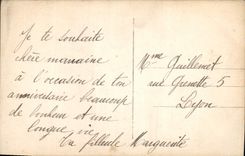 Je te souhaite
chère marraine
à l'occasion de ton
anniversaire beaucoup
de bonheur et une
longue vie
Ta filleule Marguerite
Mme Guillemet
rue Grenette 5
Lyon